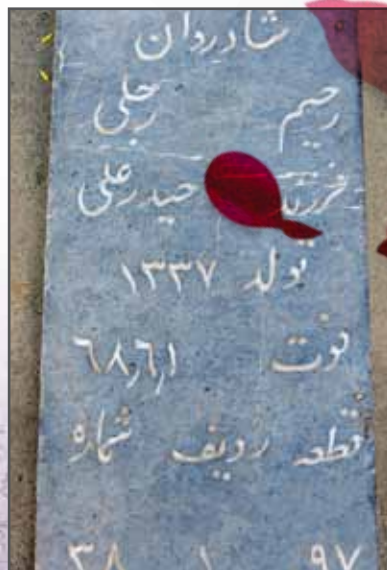 شادروان
رحیم رجلی
فرزند حیدرعلی
تولد ۱۳۳۷
فوت ۶۸٫۶٫۱
قطعه ردیف شماره
۹۷ ۱ ۳۸